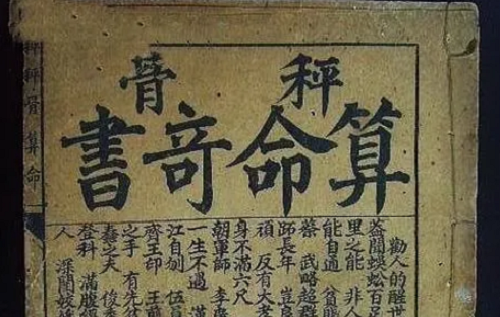 秤骨
算命竒書
勸人的醒世
蓋聞蜈蚣百足
里之能 非人
能自通 貧賤
蔡 武略超群
師長年 豈
頑 反有大孝
身不滿六尺
朝軍師 李廣
一生不過 漢
江自刎 伍員
齊王印 王
之手 有先貧
壽之夫 俊秀
登科 滿腹
人 深閨
秤秤骨算命